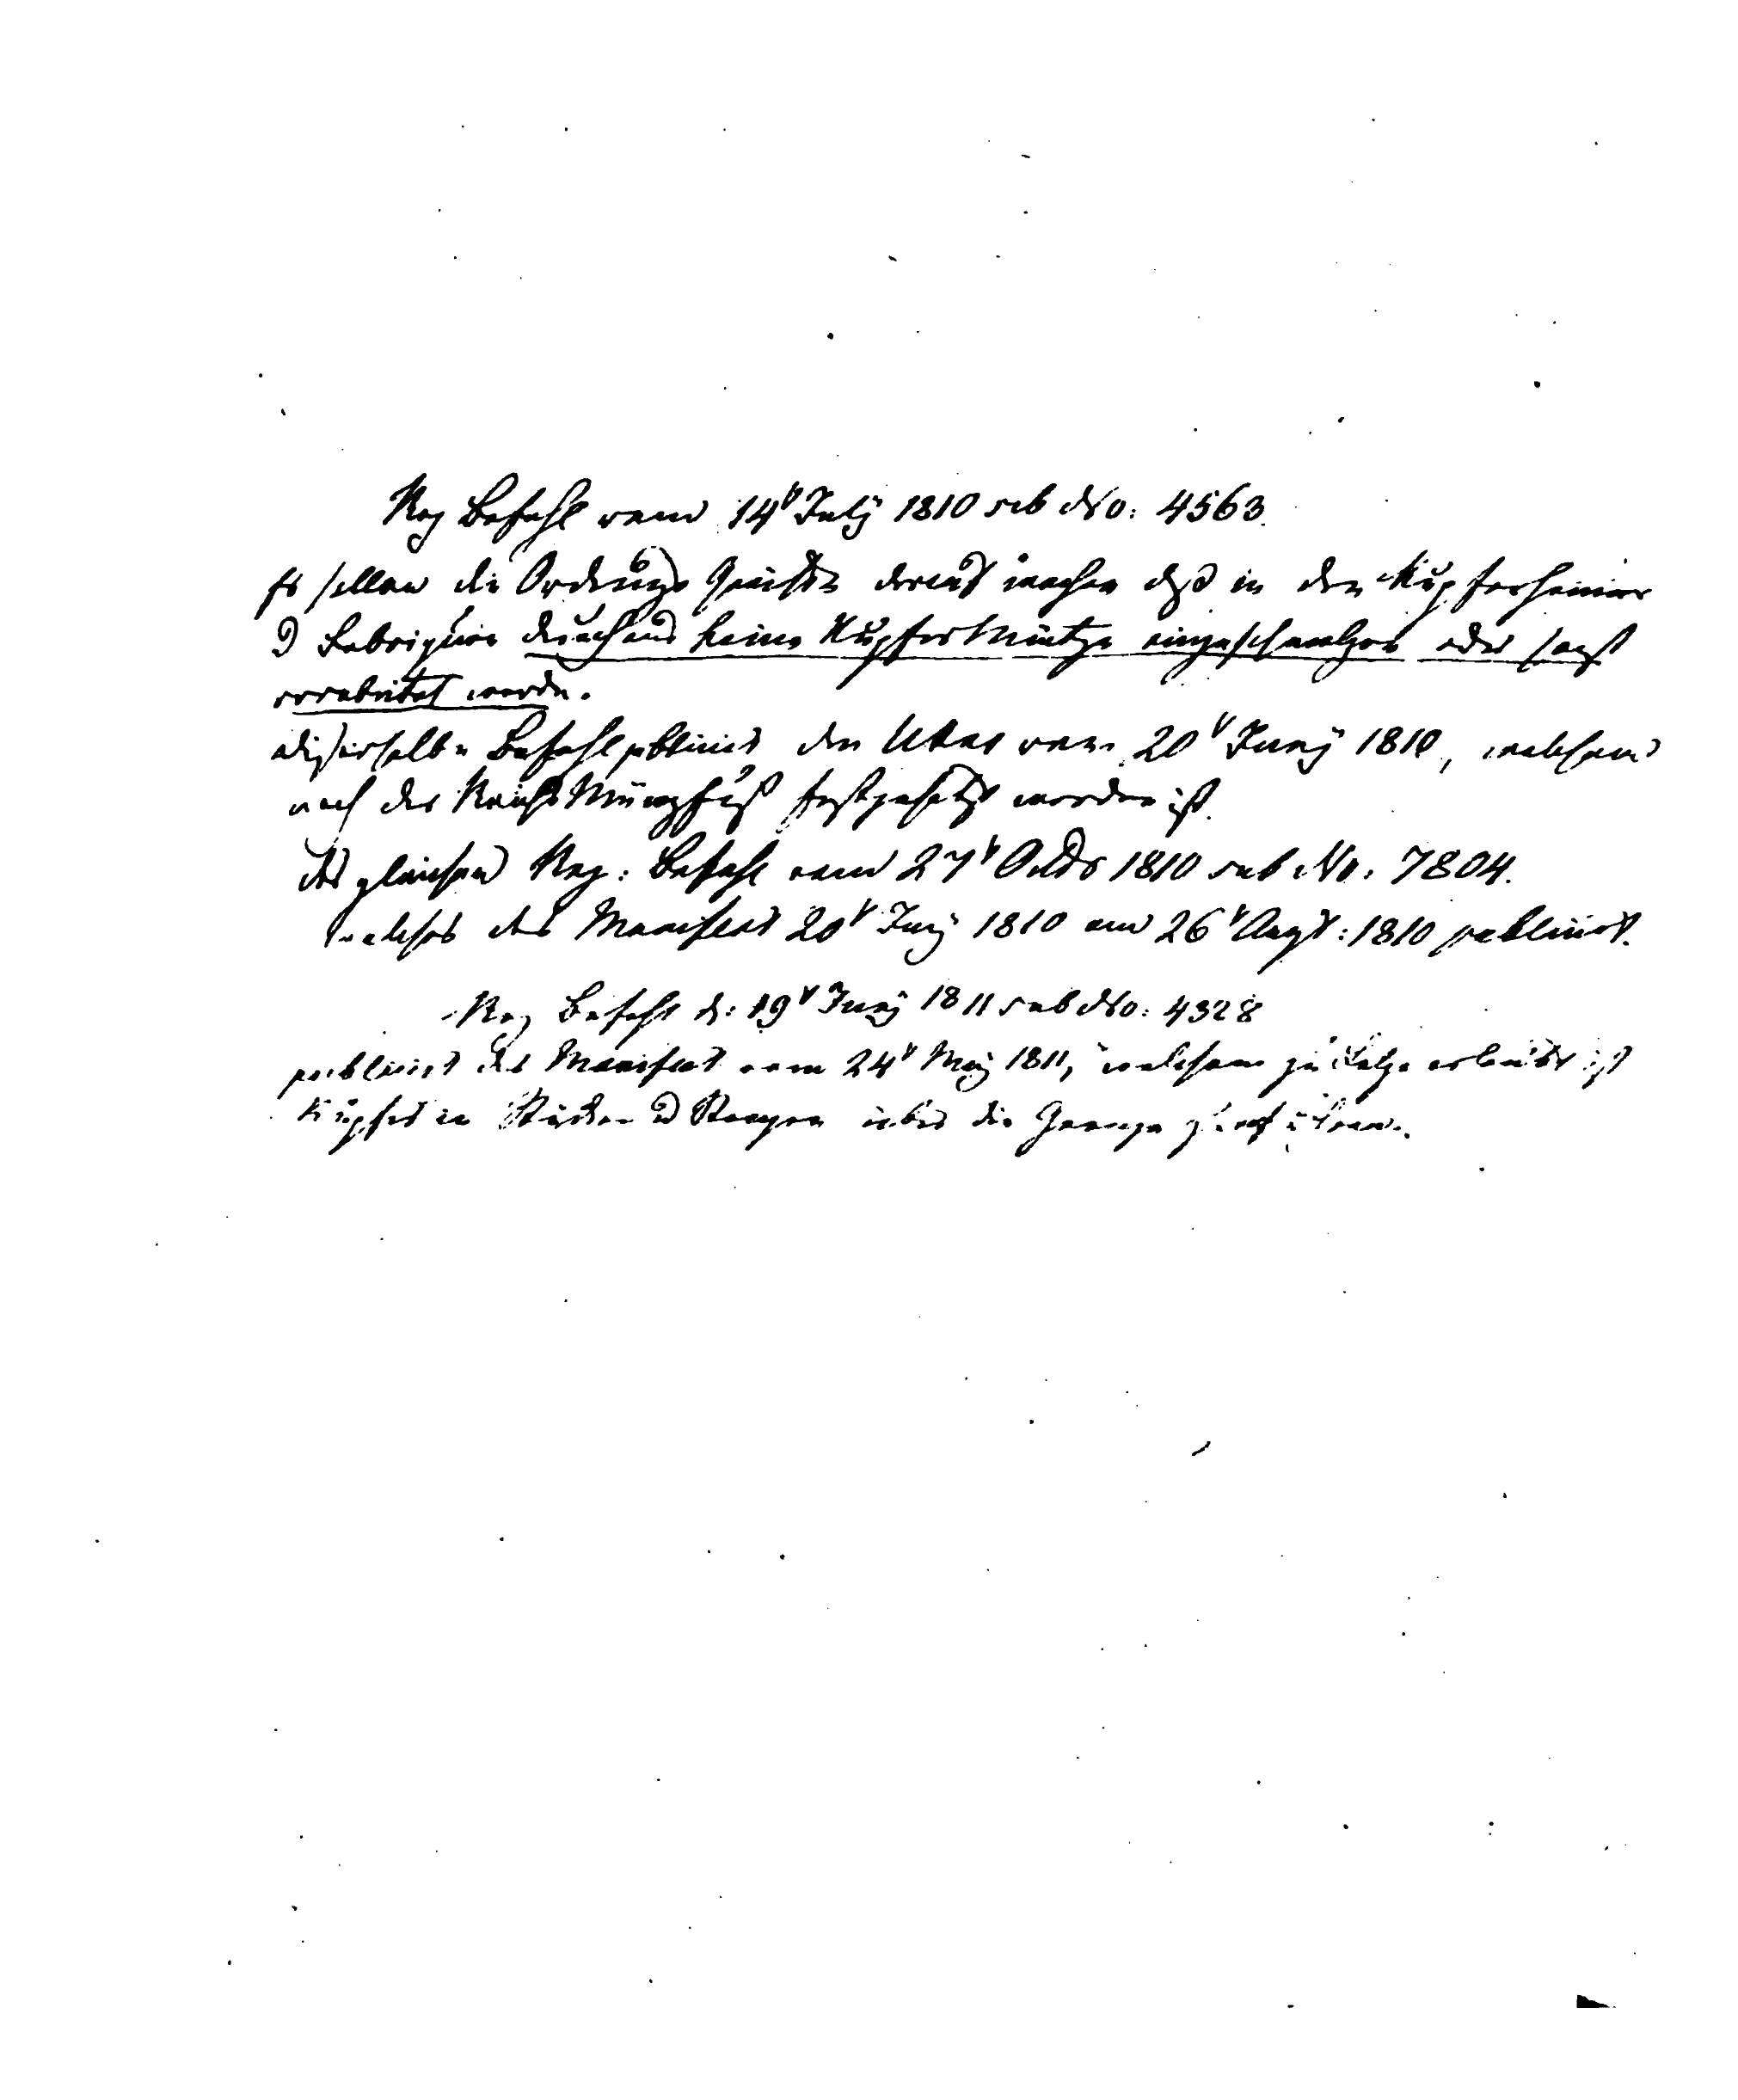 Reg Befehl vom 14t July 1810 sub No: 4563.
Es sollen die Ordnungs Gerichte darauf wachen daß in den Kupferhämer
d Fabriquen durchaus keine Kupfer Müntze eingeschmolzen oder sonst
verarbeitet werde.
Dieserselbe Befehl publicirt den Ukas vom 20t Juny 1810, welchem
nach der Reichs Münzfuß festgesetzt worden ist.
Desgleichen Reg: Befehl vom 27t Octbr 1810 sub No: 7804.
welcher das Manifest 20t Juny 1810 am 26t Augt: 1810 publicirt.
Reg Befehl d: 19t Juny 1811 sub No: 4328
publicirt das Manifest vom 24t May 1811, welchem zu Folge erlaubt ist
Kupfer in Stücken d Stangen über die Grenze